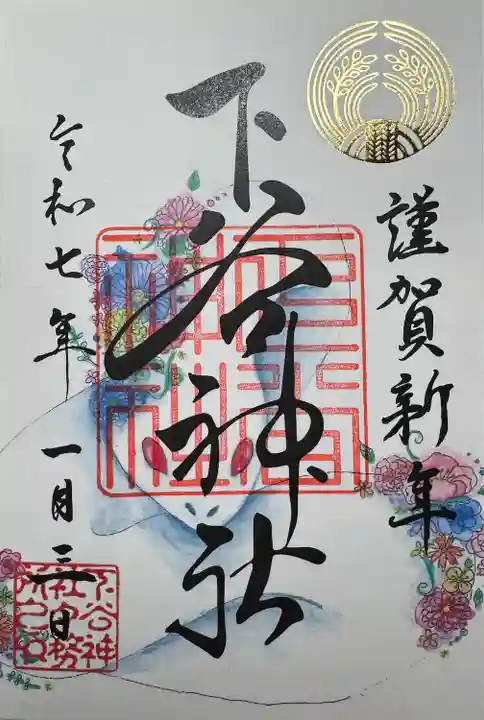 謹賀新年
下谷神社
令和七年一月三日
下谷神
社社務
所之印